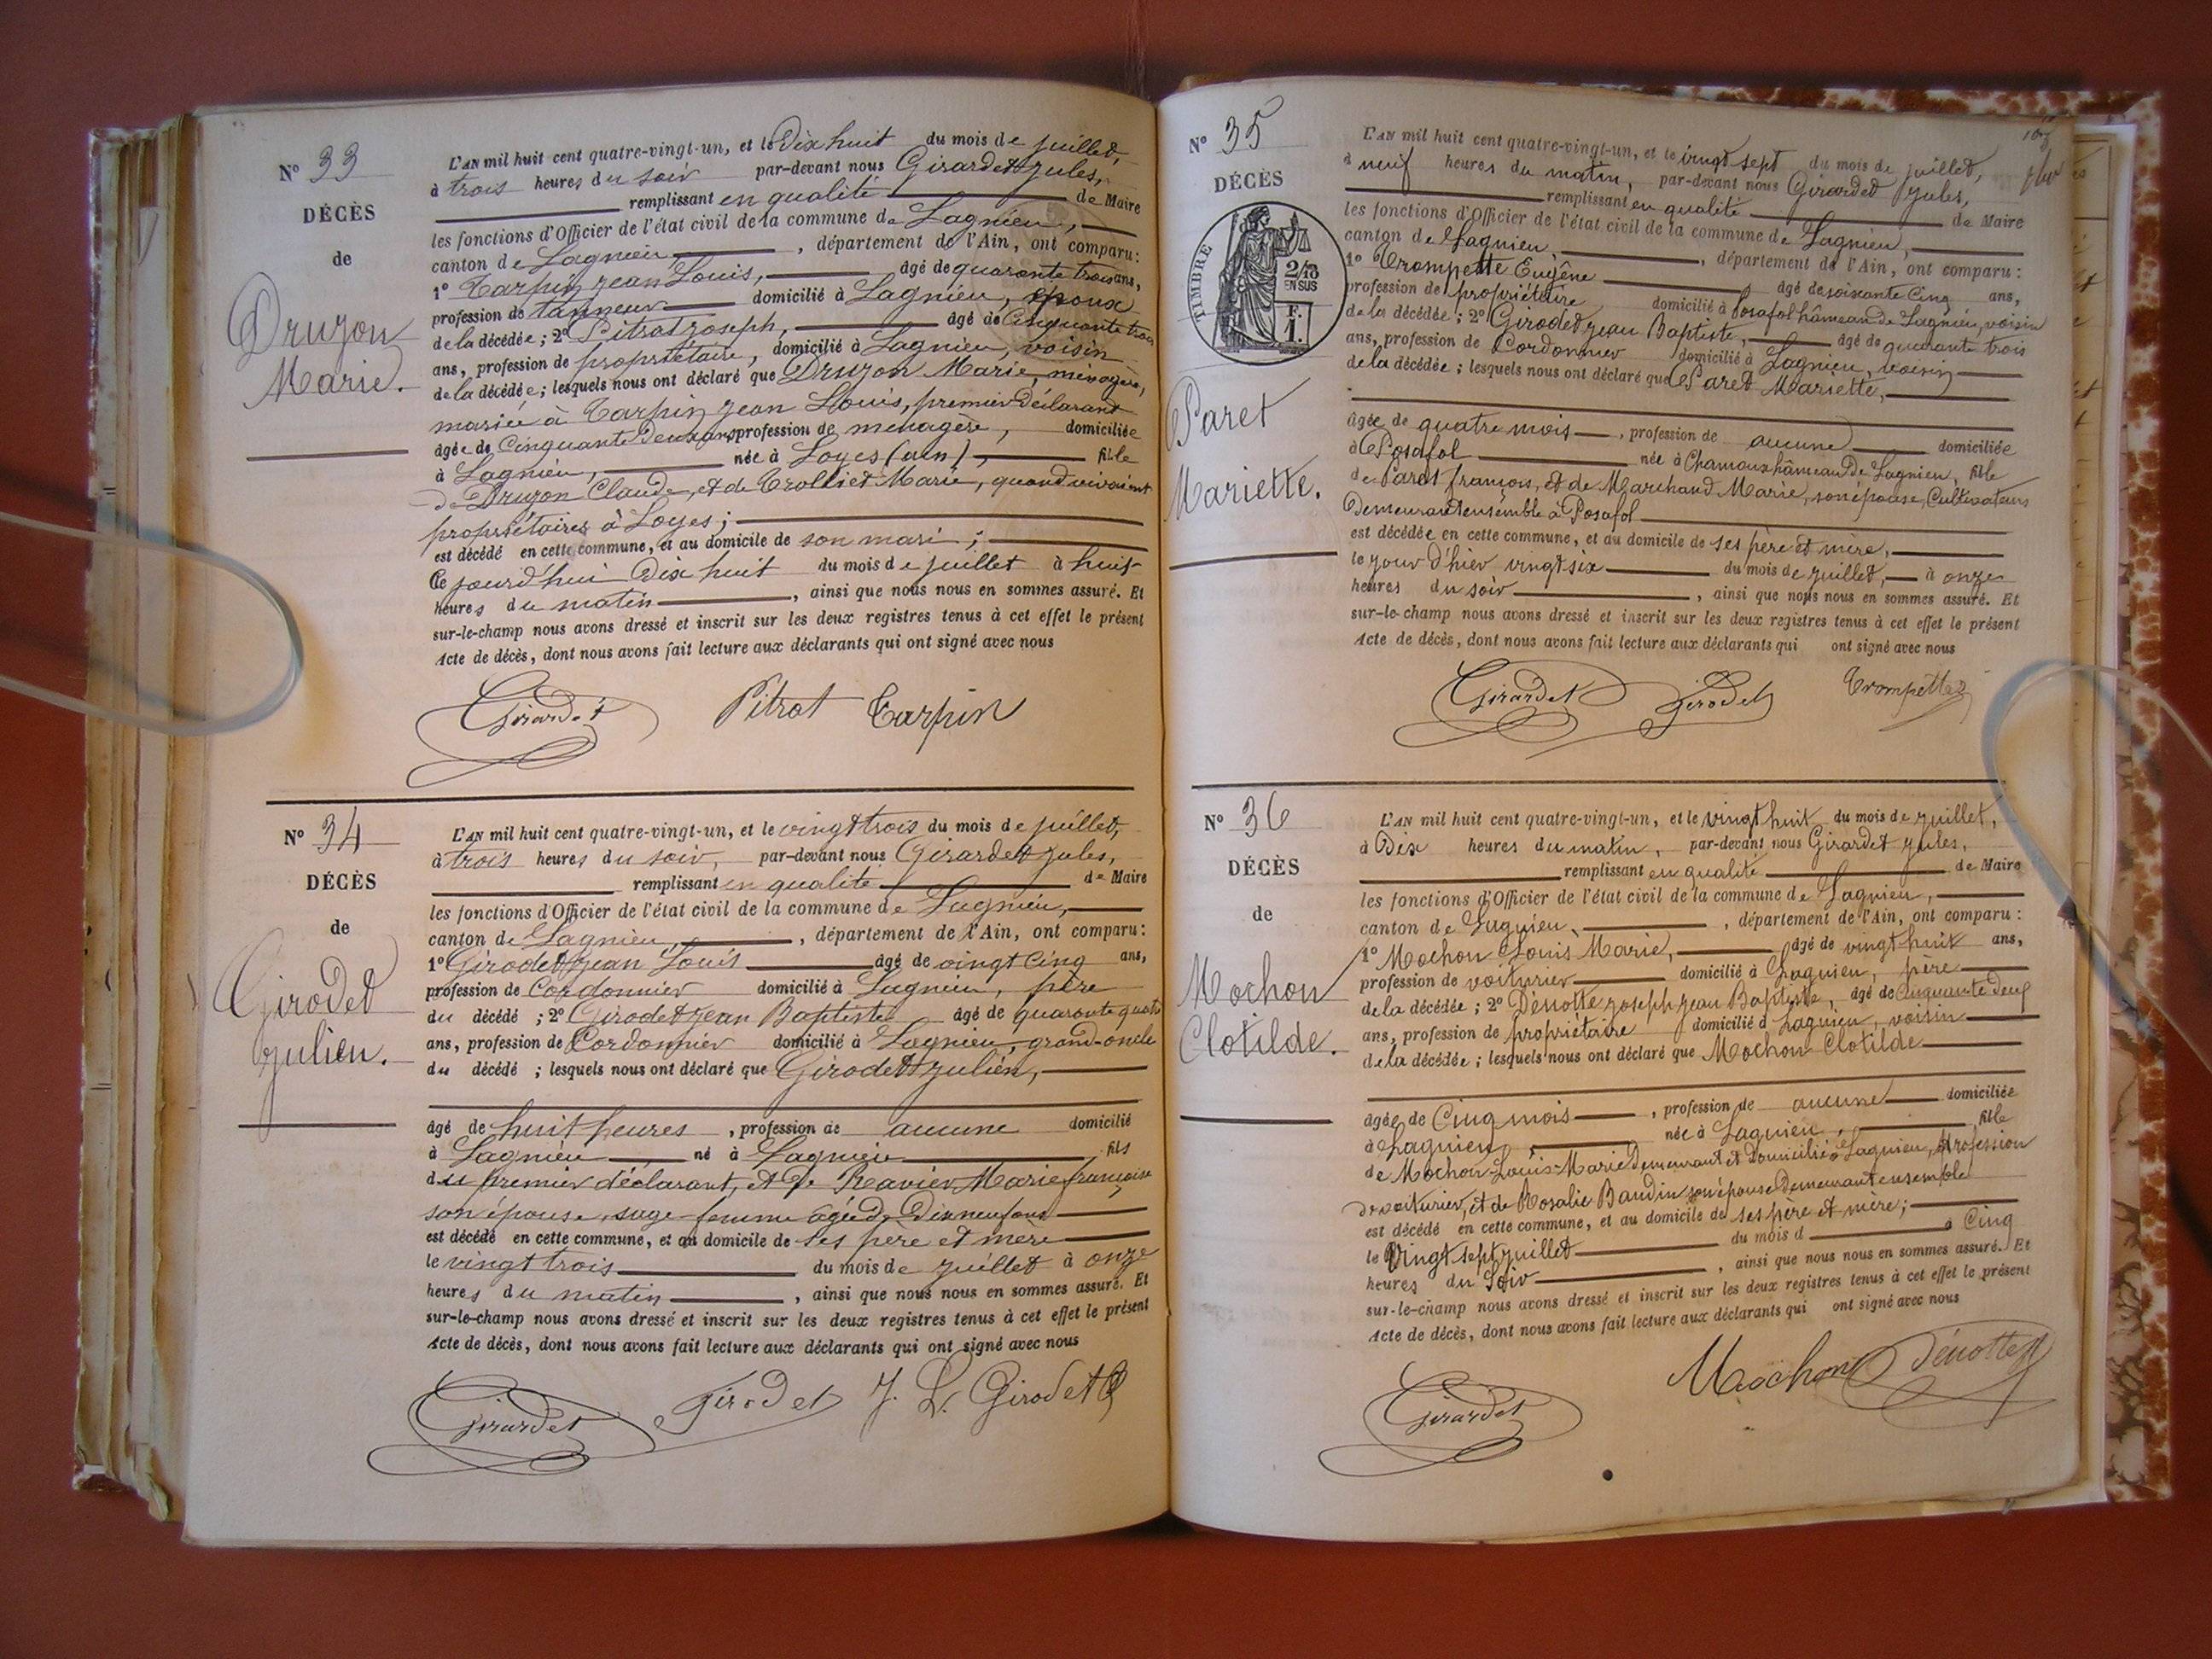 N° 33
DÉCÈS
de
Druzon
Marie.
L'AN mil huit cent quatre-vingt-un, et le Dix huit du mois de juillet,
à trois heures du soir par-devant nous Girardet Jules,
remplissant en qualité de Maire
les fonctions d'Officier de l'état civil de la commune de Lagnieu,
canton de Lagnieu, département de l'Ain, ont comparu:
1° Tarpin Jean Louis, âgé de quarante trois ans,
profession de tanneur domicilié à Lagnieu, époux
de la décédée; 2° Pitrat Joseph, âgé de Cinquante trois
ans, profession de propriétaire, domicilié à Lagnieu, voisin
de la décédée; lesquels nous ont déclaré que Druzon Marie, ménagère,
mariée à Tarpin Jean Louis, premier déclarant
âgée de Cinquante Deux ans profession de ménagère, domiciliée
à Lagnieu, née à Loyes (ain), fille
de Druzon Claude, et de Trolliet Marie, quand vivaient
propriétaires à Loyes;
est décédé en cette commune, et au domicile de son mari;
Ce jourd'hui Dix huit du mois de juillet à huit
heures du matin, ainsi que nous nous en sommes assuré. Et
sur-le-champ nous avons dressé et inscrit sur les deux registres tenus à cet effet le présent
Acte de décès, dont nous avons fait lecture aux déclarants qui ont signé avec nous
Girardet Pitrat Tarpin
N° 34
DÉCÈS
de
Girodet
Julien.
L'AN mil huit cent quatre-vingt-un, et le vingt trois du mois de juillet,
à trois heures du soir, par-devant nous Girardet Jules,
remplissant en qualité de Maire
les fonctions d'Officier de l'état civil de la commune de Lagnieu,
canton de Lagnieu, département de l'Ain, ont comparu:
1° Girodet Jean Louis âgé de vingt Cinq ans,
profession de Cordonnier domicilié à Lagnieu, père
du décédé; 2° Girodet Jean Baptiste âgé de quarante quatre
ans, profession de Cordonnier domicilié à Lagnieu, grand-oncle
du décédé; lesquels nous ont déclaré que Girodet Julien,
âgé de huit heures, profession de aucune domicilié
à Lagnieu, né à Lagnieu fils
du premier déclarant, et de Ravier Marie françoise
son épouse, sage-femme agée de Dix neuf ans
est décédé en cette commune, et au domicile de ses père et mère
le vingt trois du mois de juillet à onze
heures du matin, ainsi que nous nous en sommes assuré. Et
sur-le-champ nous avons dressé et inscrit sur les deux registres tenus à cet effet le présent
Acte de décès, dont nous avons fait lecture aux déclarants qui ont signé avec nous
Girardet Girodet J. L. Girodet
N° 35
DÉCÈS
TIMBRE
2/10
EN SUS
F.
1.
Paret
Mariette.
L'AN mil huit cent quatre-vingt-un, et le vingt sept du mois de juillet,
à neuf heures du matin, par-devant nous Girardet Jules,
remplissant en qualité de Maire
les fonctions d'Officier de l'état civil de la commune de Lagnieu,
canton de Lagnieu, département de l'Ain, ont comparu:
1° Trompette Eugène âgé de soixante Cinq ans,
profession de propriétaire domicilié à Posafol hâmeau de Lagnieu, voisin
de la décédée; 2° Girodet Jean Baptiste, âgé de quarante trois
ans, profession de Cordonnier domicilié à Lagnieu, voisin
de la décédée; lesquels nous ont déclaré que Paret Mariette,
âgée de quatre mois, profession de aucune domiciliée
à Posafol née à Chamoux hâmeau de Lagnieu, fille
de Paret françois, et de Marchand Marie, son épouse, Cultivateurs
Demeurant ensemble à Posafol
est décédée en cette commune, et au domicile de ses père et mère,
le jour d'hier vingt six du mois de juillet, à onze
heures du soir, ainsi que nous nous en sommes assuré. Et
sur-le-champ nous avons dressé et inscrit sur les deux registres tenus à cet effet le présent
Acte de décès, dont nous avons fait lecture aux déclarants qui ont signé avec nous
Girardet Girodet Trompette
N° 36
DÉCÈS
de
Mochon
Clotilde.
L'AN mil huit cent quatre-vingt-un, et le vingt huit du mois de juillet,
à Dix heures du matin, par-devant nous Girardet Jules,
remplissant en qualité de Maire
les fonctions d'Officier de l'état civil de la commune de Lagnieu,
canton de Lagnieu, département de l'Ain, ont comparu:
1° Mochon Louis Marie, âgé de vingt huit ans,
profession de voiturier domicilié à Lagnieu, père
de la décédée; 2° Dénotte Joseph Jean Baptiste, âgé de Cinquante deux
ans, profession de propriétaire domicilié à Lagnieu, voisin
de la décédée; lesquels nous ont déclaré que Mochon Clotilde
âgée de Cinq mois, profession de aucune domiciliée
à Lagnieu, née à Lagnieu, fille
de Mochon Louis-Marie Demeurant et Domicilié à Lagnieu, profession
de voiturier, et de Rosalie Baudin son épouse Demeurant ensemble
est décédé en cette commune, et au domicile de ses père et mère;
le Vingt sept juillet du mois d à Cinq
heures du Soir, ainsi que nous nous en sommes assuré. Et
sur-le-champ nous avons dressé et inscrit sur les deux registres tenus à cet effet le présent
Acte de décès, dont nous avons fait lecture aux déclarants qui ont signé avec nous
Girardet Mochon Dénotte